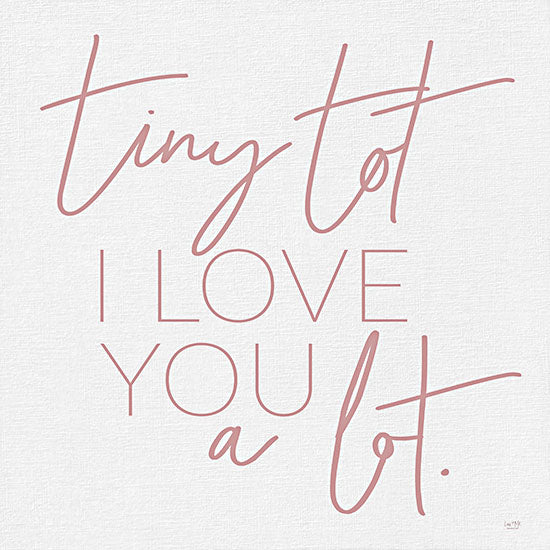 tiny tot
I LOVE
YOU
a lot.